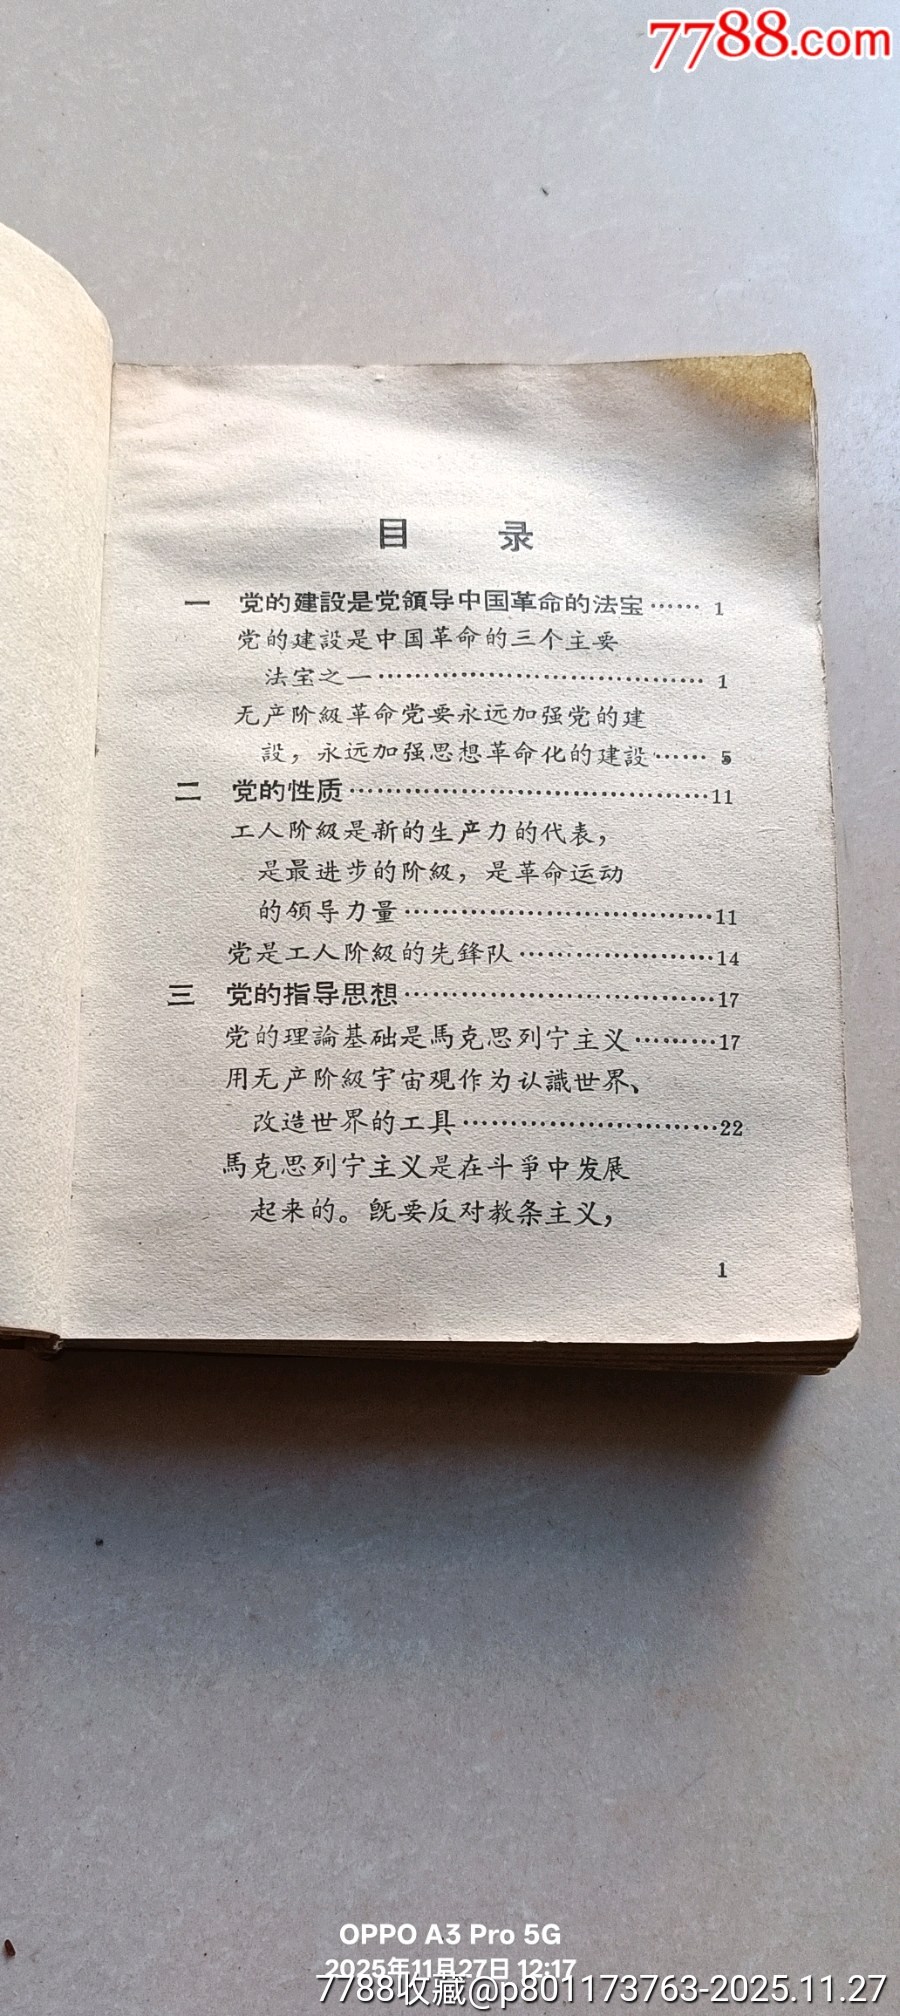 7788.com
目 录
一 党的建設是党領导中国革命的法宝…… 1
党的建設是中国革命的三个主要
法宝之一………………………………… 1
无产阶級革命党要永远加强党的建
設，永远加强思想革命化的建設…… 5
二 党的性质……………………………………11
工人阶級是新的生产力的代表，
是最进步的阶級，是革命运动
的領导力量………………………………11
党是工人阶級的先鋒队……………………14
三 党的指导思想………………………………17
党的理論基础是馬克思列宁主义………17
用无产阶級宇宙观作为认識世界、
改造世界的工具…………………………22
馬克思列宁主义是在斗爭中发展
起来的。既要反对教条主义，
1
OPPO A3 Pro 5G
2025年11月27日 12:17
7788收藏@p801173763-2025.11.27